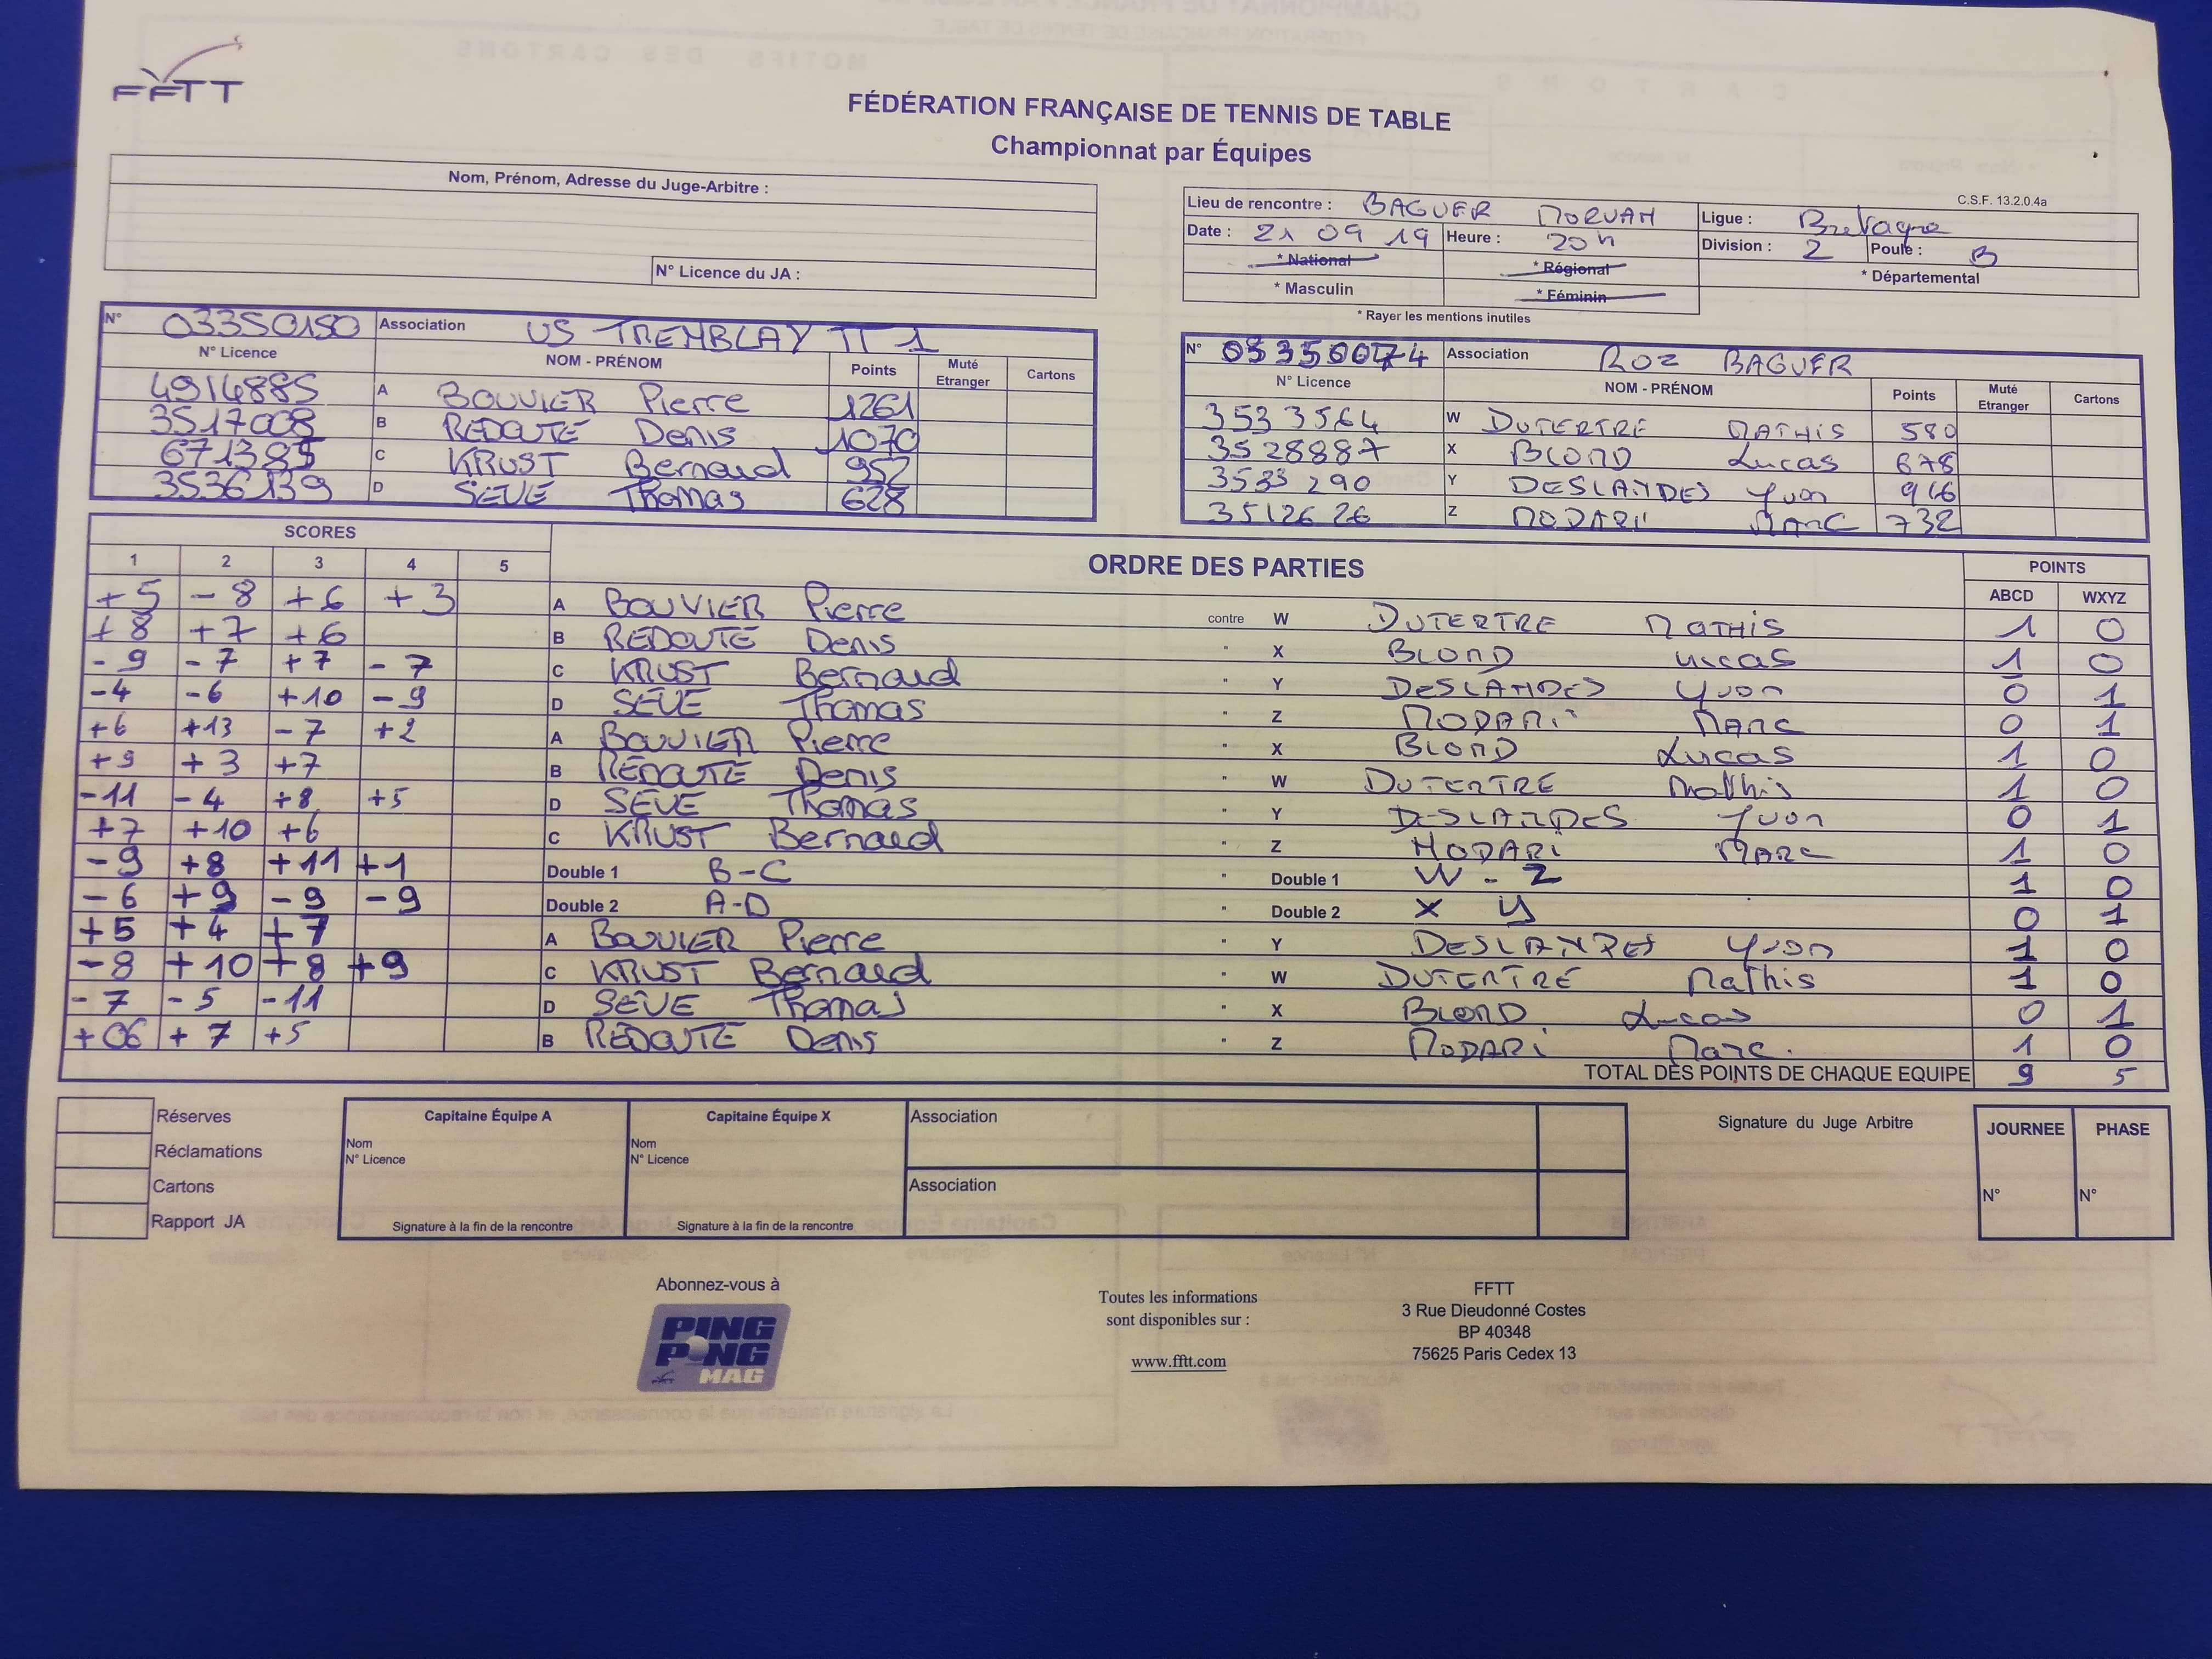 FFTT
FÉDÉRATION FRANÇAISE DE TENNIS DE TABLE
Championnat par Équipes
Nom, Prénom, Adresse du Juge-Arbitre :
N° Licence du JA :
C.S.F. 13.2.0.4a
Lieu de rencontre : BAGUER MORVAN Ligue : Bretagne
Date : 21 09 19 Heure : 20h Division : 2 Poule : B
* National * Régional * Départemental
* Masculin * Féminin
* Rayer les mentions inutiles
N° 03350150 Association US TREMBLAY TT 1
N° Licence NOM - PRÉNOM Points Muté Etranger Cartons
4914885 A BOUVIER Pierre 1261
3517008 B REDOUTE Denis 1070
671385 C KRUST Bernard 952
3536139 D SEVE Thomas 628
N° 03350074 Association ROZ BAGUER
N° Licence NOM - PRÉNOM Points Muté Etranger Cartons
3533564 W DUTERTRE MATHIS 580
3528887 X BLOND Lucas 678
3533290 Y DESLANDES Yvon 966
3512626 Z MODARI MARC 732
SCORES ORDRE DES PARTIES POINTS
1 2 3 4 5 ABCD WXYZ
+5 -8 +6 +3 A BOUVIER Pierre contre W DUTERTRE MATHIS 1 0
+8 +7 +6 B REDOUTE Denis " X BLOND Lucas 1 0
-9 -7 +7 -7 C KRUST Bernard " Y DESLANDES Yvon 0 1
-4 -6 +10 -9 D SEVE Thomas " Z MODARI MARC 0 1
+6 +13 -7 +2 A BOUVIER Pierre " X BLOND Lucas 1 0
+9 +3 +7 B REDOUTE Denis " W DUTERTRE Mathis 1 0
-11 -4 +8 +5 D SEVE Thomas " Y DESLANDES Yvon 0 1
+7 +10 +6 C KRUST Bernard " Z MODARI MARC 1 0
-9 +8 +11 +1 Double 1 B-C " Double 1 W - Z 1 0
-6 +9 -9 -9 Double 2 A-D " Double 2 X Y 0 1
+5 +4 +7 A BOUVIER Pierre " Y DESLANDES Yvon 1 0
-8 +10 +8 +9 C KRUST Bernard " W DUTERTRE Mathis 1 0
-7 -5 -11 D SEVE Thomas " X BLOND Lucas 0 1
+06 +7 +5 B REDOUTE Denis " Z MODARI Marc. 1 0
TOTAL DES POINTS DE CHAQUE EQUIPE 9 5
Réserves
Réclamations
Cartons
Rapport JA
Capitaine Équipe A
Nom
N° Licence
Signature à la fin de la rencontre
Capitaine Équipe X
Nom
N° Licence
Signature à la fin de la rencontre
Association
Association
Signature du Juge Arbitre
JOURNEE PHASE
N° N°
Abonnez-vous à
PING
PONG
MAG
Toutes les informations
sont disponibles sur :
www.fftt.com
FFTT
3 Rue Dieudonné Costes
BP 40348
75625 Paris Cedex 13